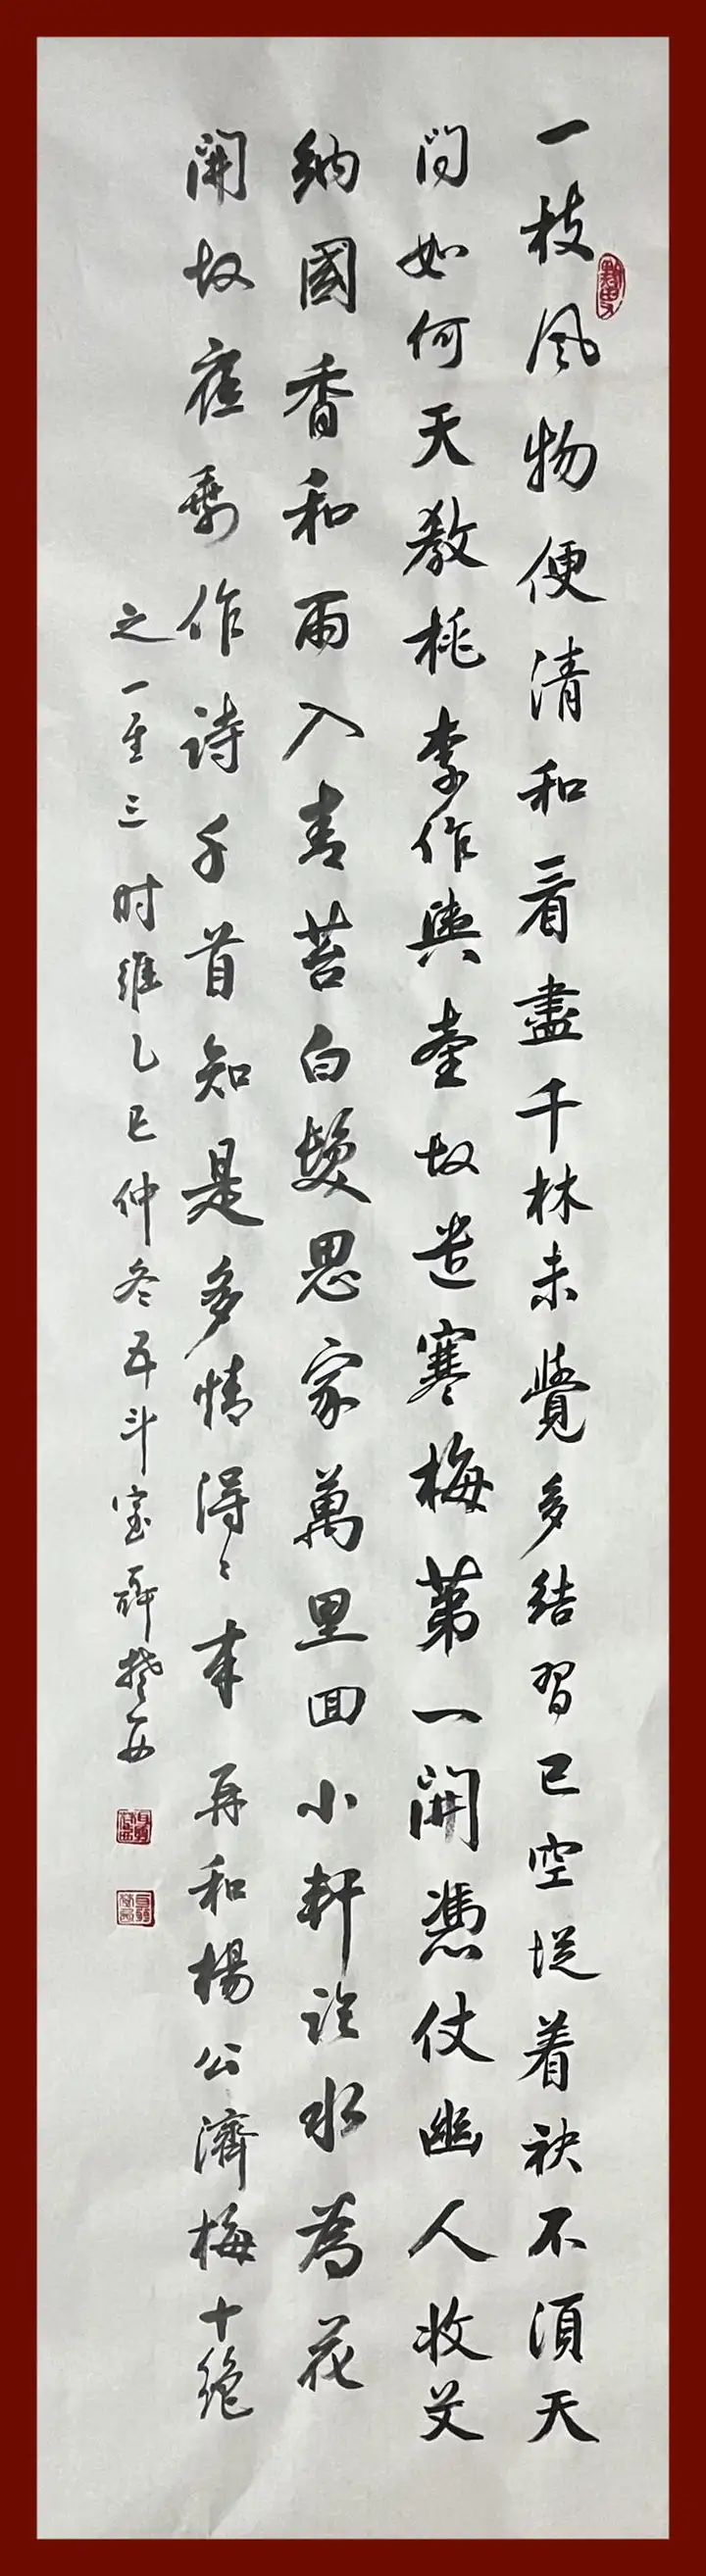 一枝風物便清和看盡千林未覺多結習已空從着袂不須天
問如何天教桃李作輿臺故遣寒梅第一開憑仗幽人收艾
納國香和雨入青苔白髮思家萬里回小軒臨水為花
開故應剩作詩千首知是多情得〻来再和楊公濟梅十絶
之一至三时維乙巳仲冬五斗室